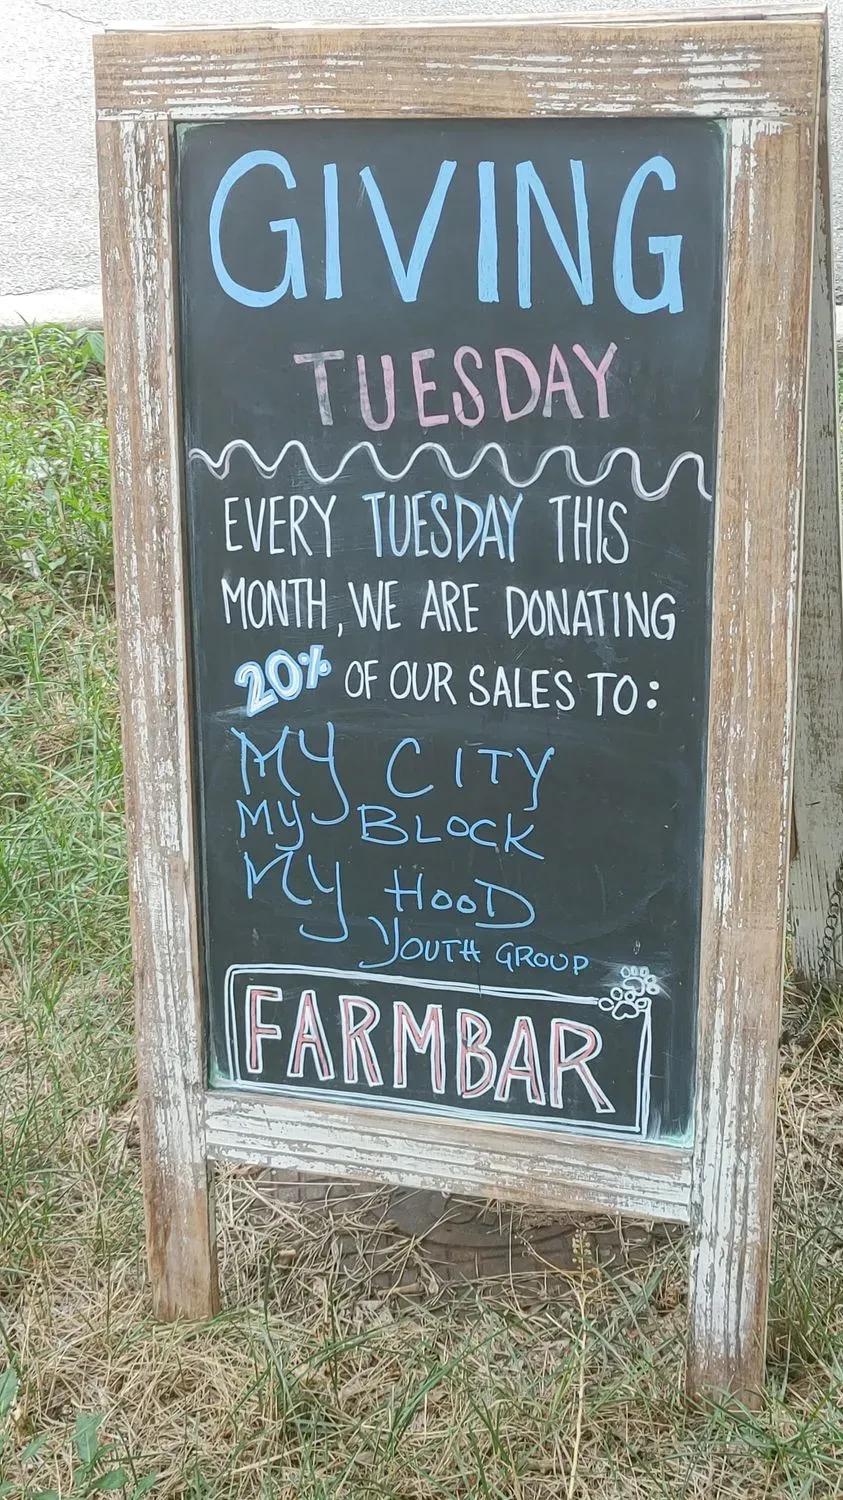 GIVING
TUESDAY
EVERY TUESDAY THIS
MONTH, WE ARE DONATING
20% OF OUR SALES TO:
MY CITY
MY BLOCK
MY HOOD
YOUTH GROUP
FARMBAR